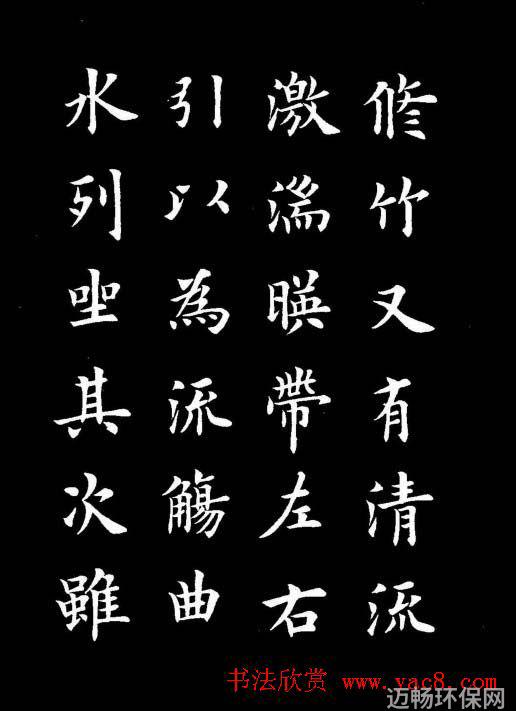 修竹又有清流
激湍暎帶左右
引以為流觴曲
水列坐其次雖
书法欣赏 http://www.yac8.com
迈畅环保网